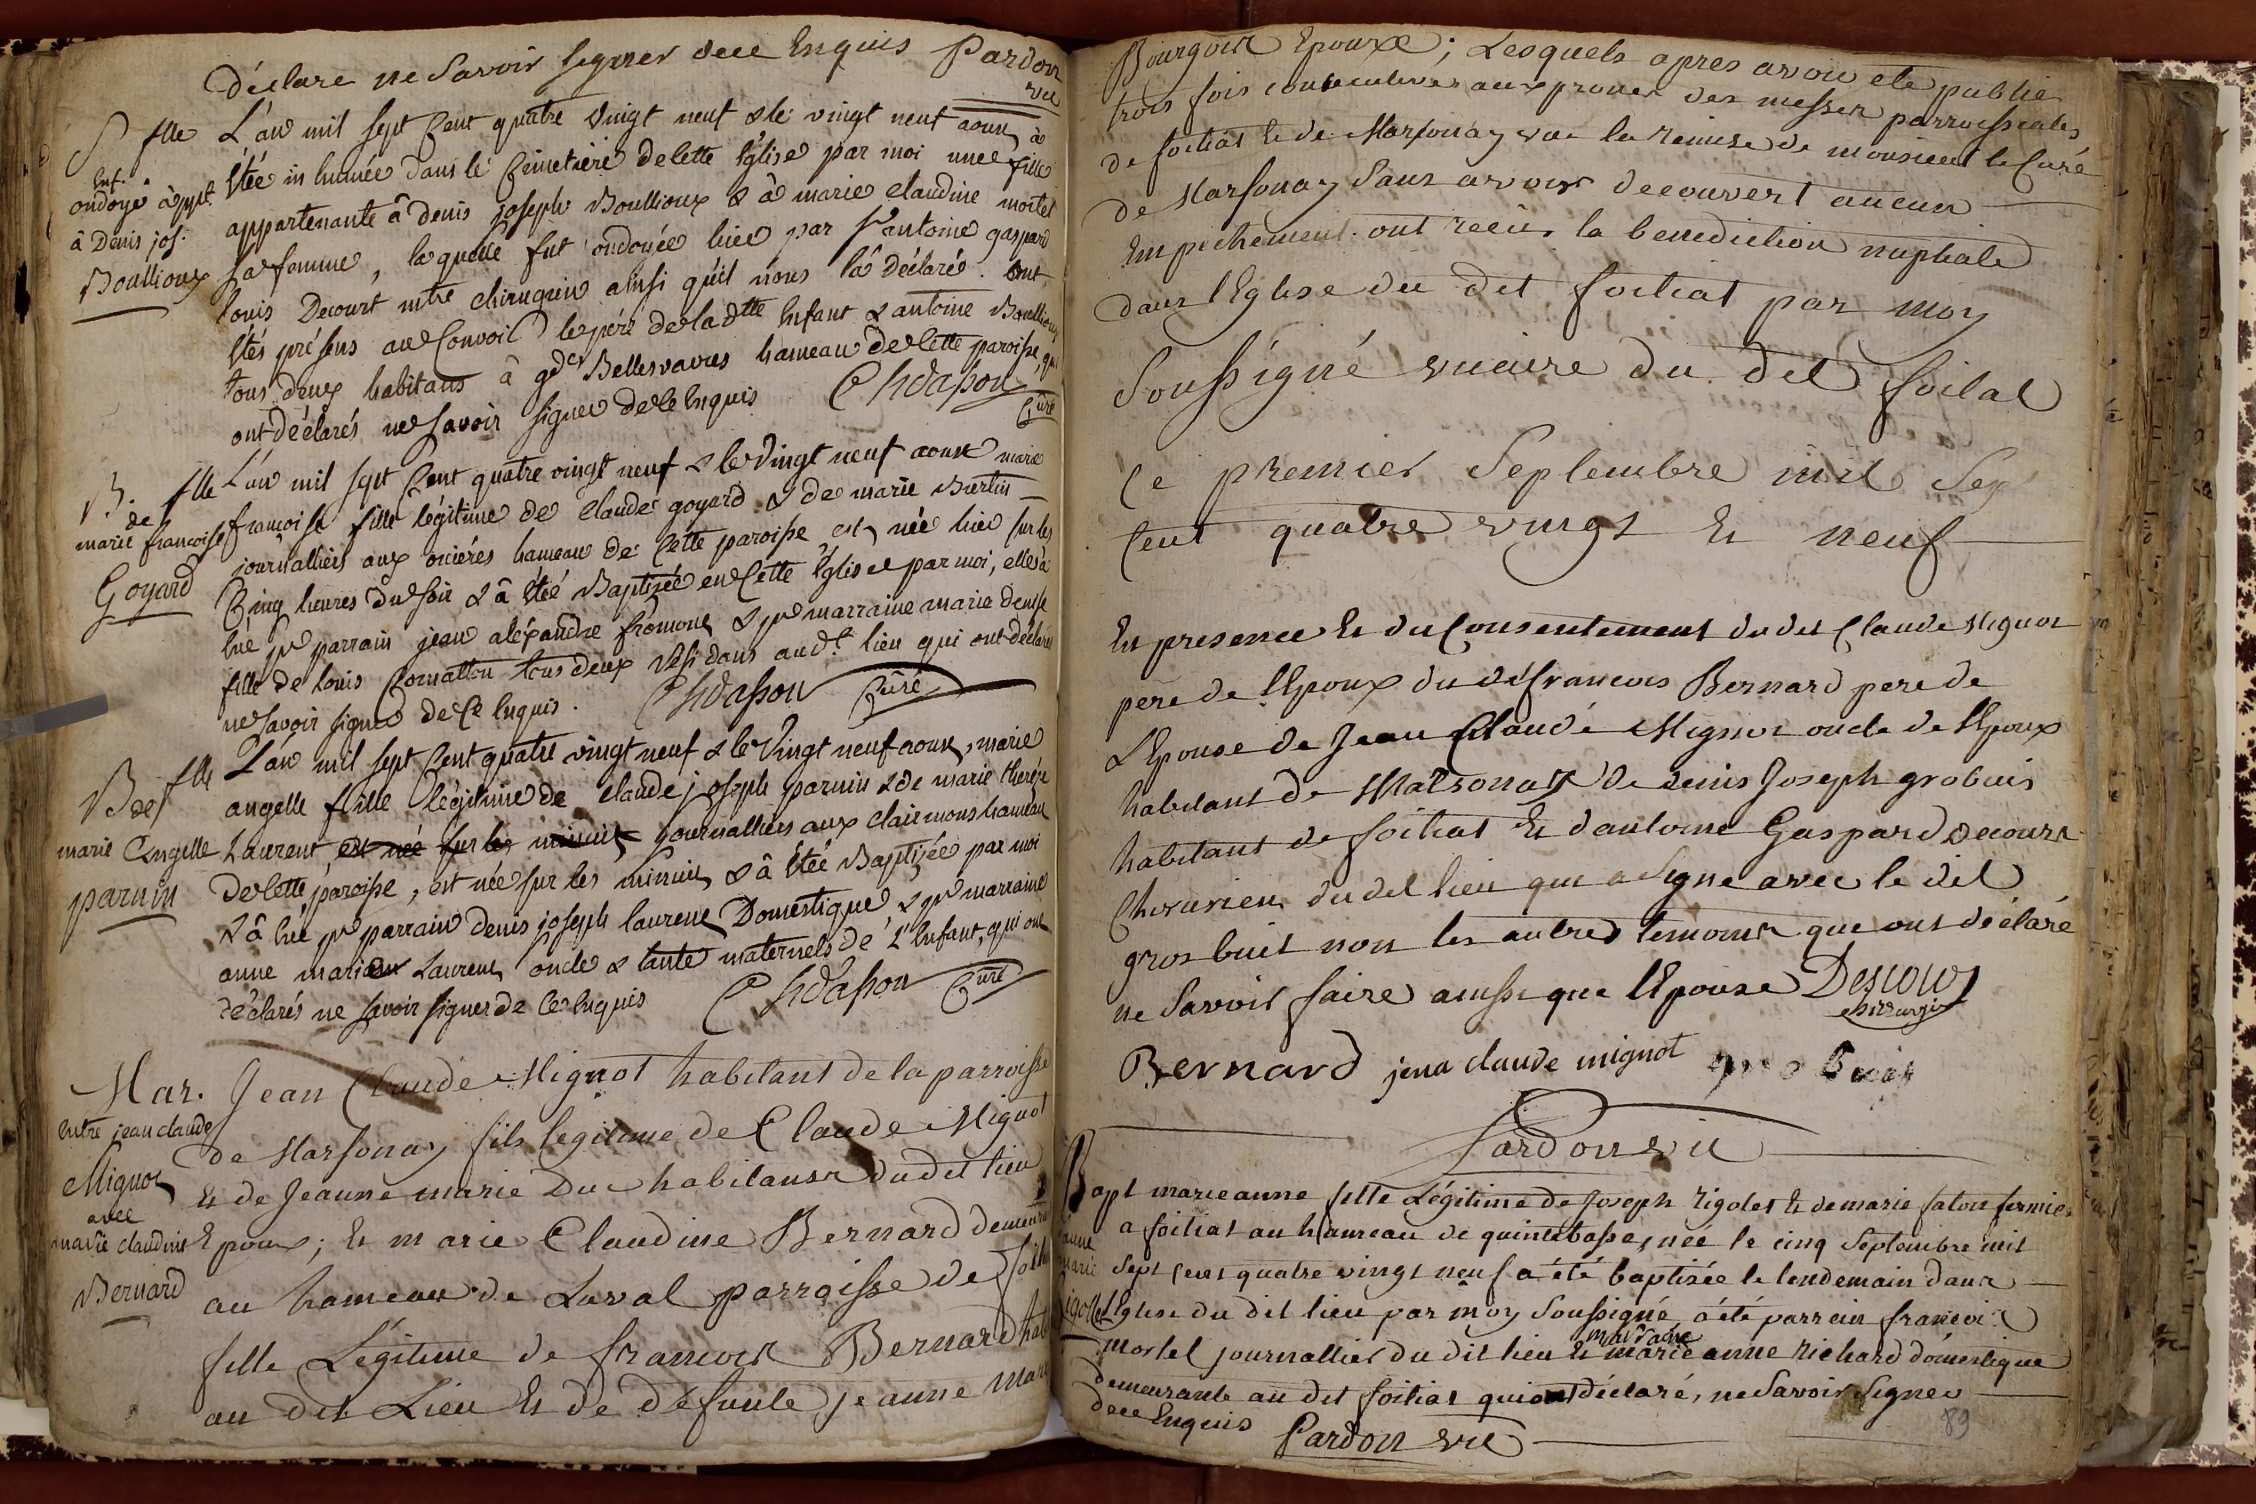 déclare ne savoir signer dece Enquis Pardon
vic
S flle L'an mil sept Cent quatre vingt neuf & le vingt neuf aoust à
Enf.
ondoyé àppt
à Denis jos.
Boullioux
Étée in humée dans lé Cimetiére decette Église par moi unee fille
appartenante â denis joseph Boullioux & â marie claudine mortel
sa femme, la quelle fut ondoyée hier par sr antoine gaspard
louis Decourt mtre chirugien ainsi qu'il nous l'â déclaré. ont
étés présens au Convoi le pére de la dtte Enfant & antoine Boullioux
tous deux habitans â gdes Bellesvavres hameau de Cette paroisse, qui
ont déclarés ne savoir signer dece Enquis Chdasson
Curé
B. flle
de
marie francoise
Goyard
L'an mil sept Cent quatre vingt neuf & le vingt neuf aoust marie
françoise fille légitime de Claude goyard & de marie Burtin
journalliers aux oriéres hameau de Cette paroisse est née hier sur les
Cinq heures du soir & â étée Baptizée en Cette Église par moi, elle à
Eue pr parrain jean aléxandre fromont & pr marraine marie denise
fille de louis Cornatton tous deux résidans audt lieu qui ont déclarés
ne savoir signer de Ce Enquis. Chdasson Curé
B de flle
marie Angelle
parnin
L'an mil sept Cent quatre vingt neuf & le vingt neuf aoust, marie
angelle fille légitime de Claude joseph parnin & de marie therése
Laurent est née sur les minuit journalliers aux clairmons hameau
de Cette paroisse, est née sur les minuit & â étée Baptizée par moi
& â Eue pr parrain denis joseph laurent Domestique & pr marraine
anne marie Laurent oncle & tante maternels de L'Enfant, qui ont
déclarés ne savoir signer de Ce Enquis Chdasson Curé
Mar.
Entre jean claude
Mignot
avec
marie claudine
Bernard
Jean Claude Mignot habitant de la parroisse
de Marsonay fils legitime de Claude Mignot
Et de Jeanne marie Duc habitans du dit lieu
Epoux; Et marie Claudine Bernard demeurant
au hameau de Laval parroisse de foitiat
fille Légitime de francois Bernard hab
au dit Lieu Et de défunte jeanne marie
Bourgois Epouse; Lesquels apres avoir ete publié
trois fois consecutives aux prones des messes parroissiales
de foitiat et de Marsonay vue la remise de monsieur le Curé
de Marsonay sans avoir decouvert aucun
Empéchement ont recûs la benediction nuptiale
dans l'Eglise du dit foitiat par moy
soussigné vicaire du dit foitiat
Ce premier Septembre mil Sept
Cent quatre vingt Et neuf
En presence Et du Consentement du dit Claude Mignot
pere de l'Epoux du dit francois Bernard pere de
L'Epouse de Jean Claude Mignot oncle de l'Epoux
habitant de Marsonay de denis Joseph grobuis
habitant de foitiat Et d'antoine Gaspard decourt
Chirurien du dit lieu qui a Signe avec le dit
gros buit non les autres temoins que ont déclaré
ne Savoir faire aussi que l'Epouse Descours
chirurgien
Bernard jena claude mignot gro buis
Pardon vic
Bapt marie anne fille Légitime de Joseph Rigolet Et de marie faton fermiers
anne
marie
Rigollet
a foitiat au hameau de quintebasse, née le cinq Septembre mil
Sept Cent quatre vingt neuf a été baptisée le lendemain dans
l'Eglise du dit lieu par moy Soussigné a été parrein francois
mortel journallier du dit lieu Et marie anne Richard domestique
marraine
demeurante au dit foitiat qui ont déclaré, ne Savoir Signer
dece Enquis Pardon vic
89